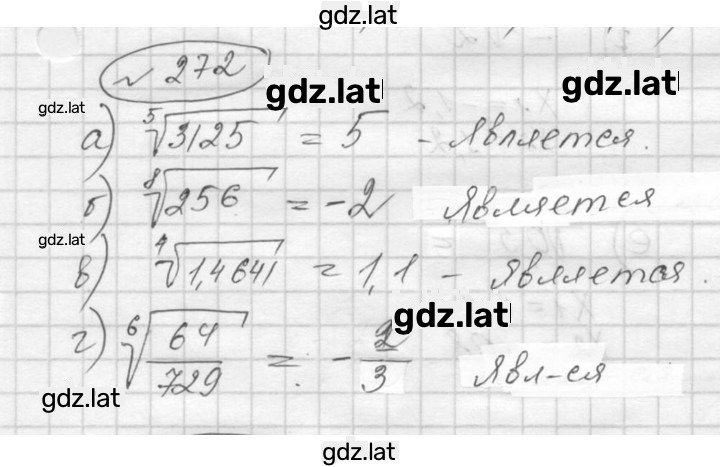 gdz.lat
№ 272
gdz.lat gdz.lat gdz.lat
а) ⁵√3125 = 5 - является.
б) ⁸√256 = -2 является
gdz.lat
в) ⁴√1,4641 = 1,1 - является.
gdz.lat
г) ⁶√64/729 = -2/3 явл-ся
gdz.lat
gdz.lat